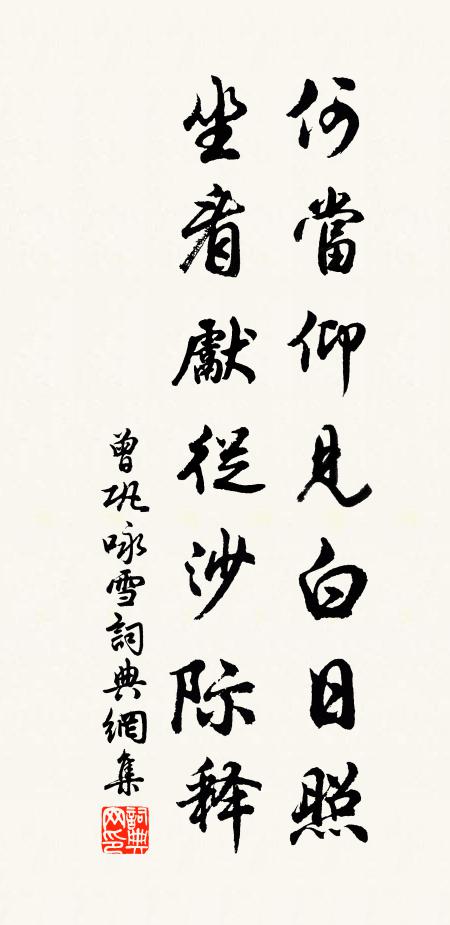 何當仰見白日照
坐看獻從沙际释
曾巩咏雪詞典網集
詞典网印